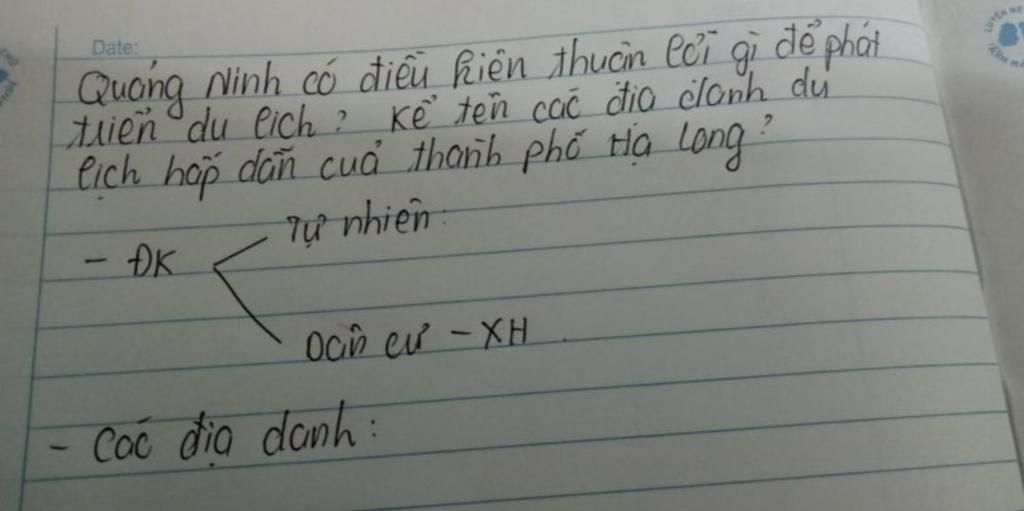 Date:
Quảng Ninh có điều kiện thuận lợi gì để phát
triển du lịch? Kể tên các địa danh du
lịch hấp dẫn của thành phố Hạ Long?
- ĐK
Tự nhiên:
Dân cư - XH
- Các địa danh: